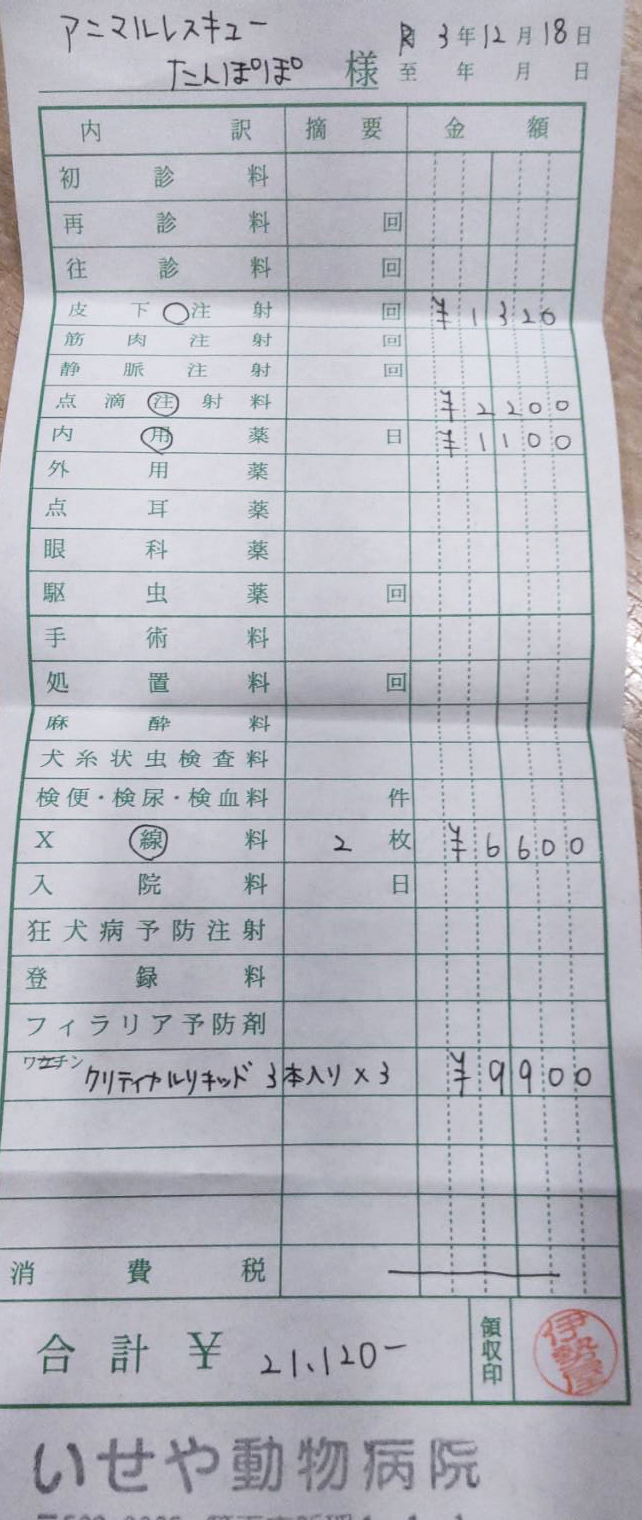 アニマルレスキュー
たんぽぽ 様
3年12月18日
至 年 月 日
内訳 摘要 金額
初診料
再診料 回
往診料 回
皮下注射 回 ¥1320
筋肉注射 回
静脈注射 回
点滴注射料 ¥2200
内用薬 日 ¥1100
外用薬
点耳薬
眼科薬
駆虫薬 回
手術料
処置料 回
麻酔料
犬糸状虫検査料
検便・検尿・検血料 件
X線料 2枚 ¥6600
入院料 日
狂犬病予防注射
登録料
フィラリア予防剤
ワクチン クリティカルリキッド 3本入り×3 ¥9900
消費税
合計¥ 21,120- 領収印 伊勢屋
いせや動物病院